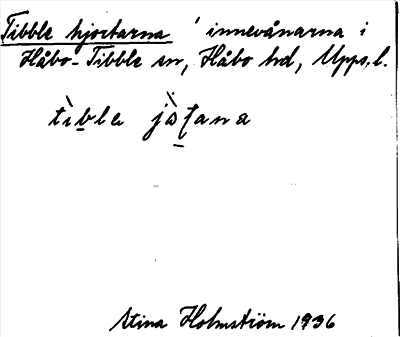 Tibble hjortarna ' innevånarna i
Håbo-Tibble sn, Håbo hd, Upps. l.
tìb̲le jä̀ʈana
Stina Holmström 1936